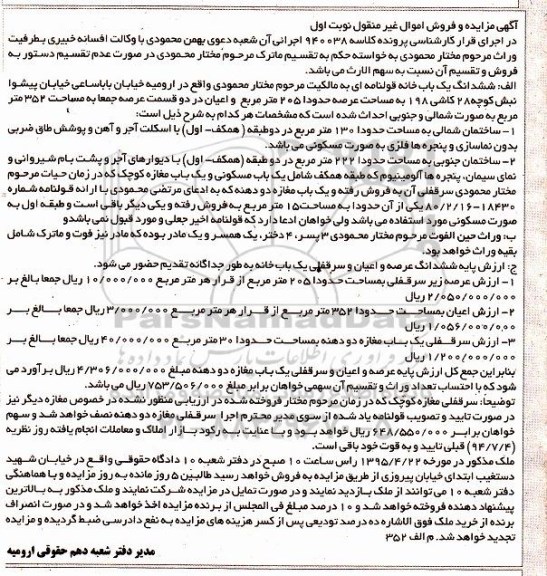 آگهی مزایده و فروش اموال غیر منقول نوبت اول
در اجرای قرار کارشناسی پرونده کلاسه ۹۴۰۰۳۸ اجرائی آن شعبه دعوی بهمن محمودی با وکالت افسانه خبیری بطرفیت
وراث مرحوم مختار محمودی به خواسته حکم به تقسیم ماترک مرحوم مختار محمودی در صورت عدم تقسیم دستور به
فروش و تقسیم آن نسبت به سهم الارث می باشد.
الف: ششدانگ یک باب خانه قولنامه ای به مالکیت مرحوم مختار محمودی واقع در ارومیه خیابان باباساعی خیابان پیشوا
نبش کوچه ۲۸ کاشی ۱۹۸ به مساحت عرصه حدودا ۲۰۵ متر مربع و اعیان در دو قسمت عرصه جمعا به مساحت ۳۵۲ متر
مربع به صورت شمالی و جنوبی احداث شده است که مشخصات هر کدام به شرح ذیل است:
۱- ساختمان شمالی به مساحت حدودا ۱۳۰ متر مربع در دوطبقه ( همکف- اول) با اسکلت آجر و آهن و پوشش طاق ضربی
بدون نماسازی و پنجره ها فلزی به صورت مسکونی می باشد.
۲- ساختمان جنوبی به مساحت حدودا ۲۲۲ متر مربع در دو طبقه ( همکف- اول) با دیوارهای آجر و پشت بام شیروانی و
نمای سیمان، پنجره ها آلومینیوم که طبقه همکف شامل یک باب مسکونی و یک باب مغازه کوچک که در زمان حیات مرحوم
مختار محمودی سرقفلی آن به فروش رفته و یک باب مغازه دو دهنه که به ادعای مرتضی محمودی با ارائه قولنامه شماره
۱۸۴۳۰-۸۰/۲/۱۶ یکی از آن حدودا به مساحت ۱۵ متر مربع به فروش رفته و یکی دیگر باقی است و طبقه اول به
صورت مسکونی مورد استفاده می باشد ولی خواهان ادعا دارد که قولنامه اخیر جعلی و مورد قبول نمی باشدو
ب: وراث حین الفوت مرحوم مختار محمودی ۳ پسر، ۴ دختر، یک همسر و یک مادر بوده که مادر نیز فوت و ماترک شامل
بقیه وراث خواهد بود.
ج: ارزش پایه ششدانگ عرصه و اعیان و سرقفلی یک باب خانه به طور جداگانه تقدیم حضور می شود.
۱- ارزش عرصه زیر سرقفلی بمساحت حدودا ۲۰۵ متر مربع از قرار هر متر مربع ۱۰/۰۰۰/۰۰۰ ریال جمعا بالغ بر
۲/۰۵۰/۰۰۰/۰۰۰ ریال
۲- ارزش اعیان بمساحت حدودا ۳۵۲ متر مربع از قرار هر متر مربع ۳/۰۰۰/۰۰۰ ریال جمعا بالغ بر
۱/۰۵۶/۰۰۰/۰۰۰ ریال
۳- ارزش سرقفلی یک باب مغازه دو دهنه بمساحت حدودا ۳۰ متر مربع ۴۰/۰۰۰/۰۰۰ ریال جمعا بالغ بر
۱/۲۰۰/۰۰۰/۰۰۰ ریال
بنابراین جمع کل ارزش پایه عرصه و اعیان و سرقفلی یک باب مغازه دو دهنه مبلغ ۴/۳۰۶/۰۰۰/۰۰۰ ریال برآورد می
شود که با احتساب تعداد وراث و تقسیم آن سهمی خواهان برابر مبلغ ۷۵۳/۵۰۶/۰۰۰ ریال می باشد.
توضیحا: سرقفلی مغازه کوچک که در زمان مرحوم مختار فروخته شده در ارزیابی منظور نشده در خصوص مغازه دیگر نیز
در صورت تایید و تصویب قولنامه یاد شده از سوی مدیر محترم اجرا سرقفلی مغازه دو دهنه نصف خواهد شد و سهم
خواهان برابر ۶۴۸/۵۵۰/۰۰۰ ریال خواهد بود و با عنایت به رکود بازار املاک و معاملات انجام یافته روز نظریه
(۹۴/۷/۴) قبلی تایید و به قوت خود باقی است.
ملک مذکور در مورخه ۱۳۹۵/۴/۲۲ راس ساعت ۱۰ صبح در دفتر شعبه ۱۰ دادگاه حقوقی واقع در خیابان شهید
دستغیب ابتدای خیابان پیروزی از طریق مزایده به فروش خواهد رسید طالبین ۵ روز مانده به روز مزایده و با هماهنگی
دفتر شعبه ۱۰ می توانند از ملک بازدید نمایند و در صورت تمایل در مزایده شرکت نمایند و ملک مذکور به بالاترین
پیشنهاد دهنده فروخته خواهد شد و ۱۰ درصد مبلغ فی المجلس از برنده مزایده اخذ خواهد شد و در صورت انصراف
برنده از خرید ملک فوق الاشاره ده درصد تودیعی پس از کسر هزینه های مزایده به نفع دادرسی ضبط گردیده و مزایده
تجدید خواهد شد. م الف ۳۵۲
مدیر دفتر شعبه دهم حقوقی ارومیه